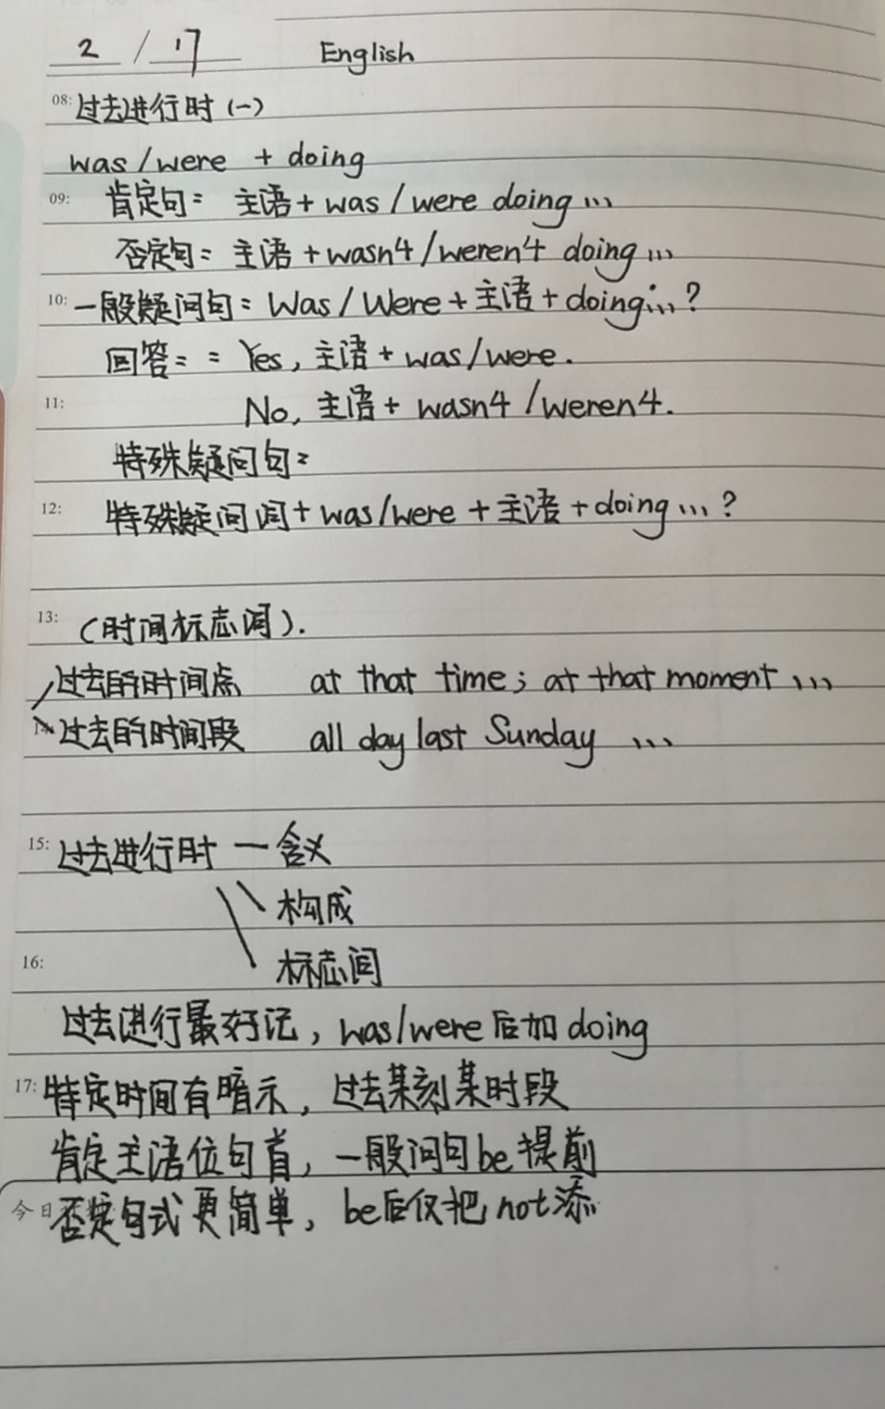 2 / 17 English
08: 过去进行时 (一)
was/were + doing
09: 肯定句: 主语 + was / were doing ...
否定句: 主语 + wasn't/weren't doing ...
10: 一般疑问句: Was/Were + 主语 + doing...?
回答: : Yes, 主语 + was/were.
11: No, 主语 + wasn't /weren't.
特殊疑问句:
12: 特殊疑问词 + was/were + 主语 + doing ...?
13: (时间标志词).
过去的时间点 at that time; at that moment ...
过去的时间段 all day last Sunday ...
15: 过去进行时 — 含义
构成
16: 标志词
过去进行最好记, was/were后加doing
17: 特定时间有暗示, 过去某刻某时段
肯定主语位句首, 一般问句be提前
今日
否定句式更简单, be后仅把not添